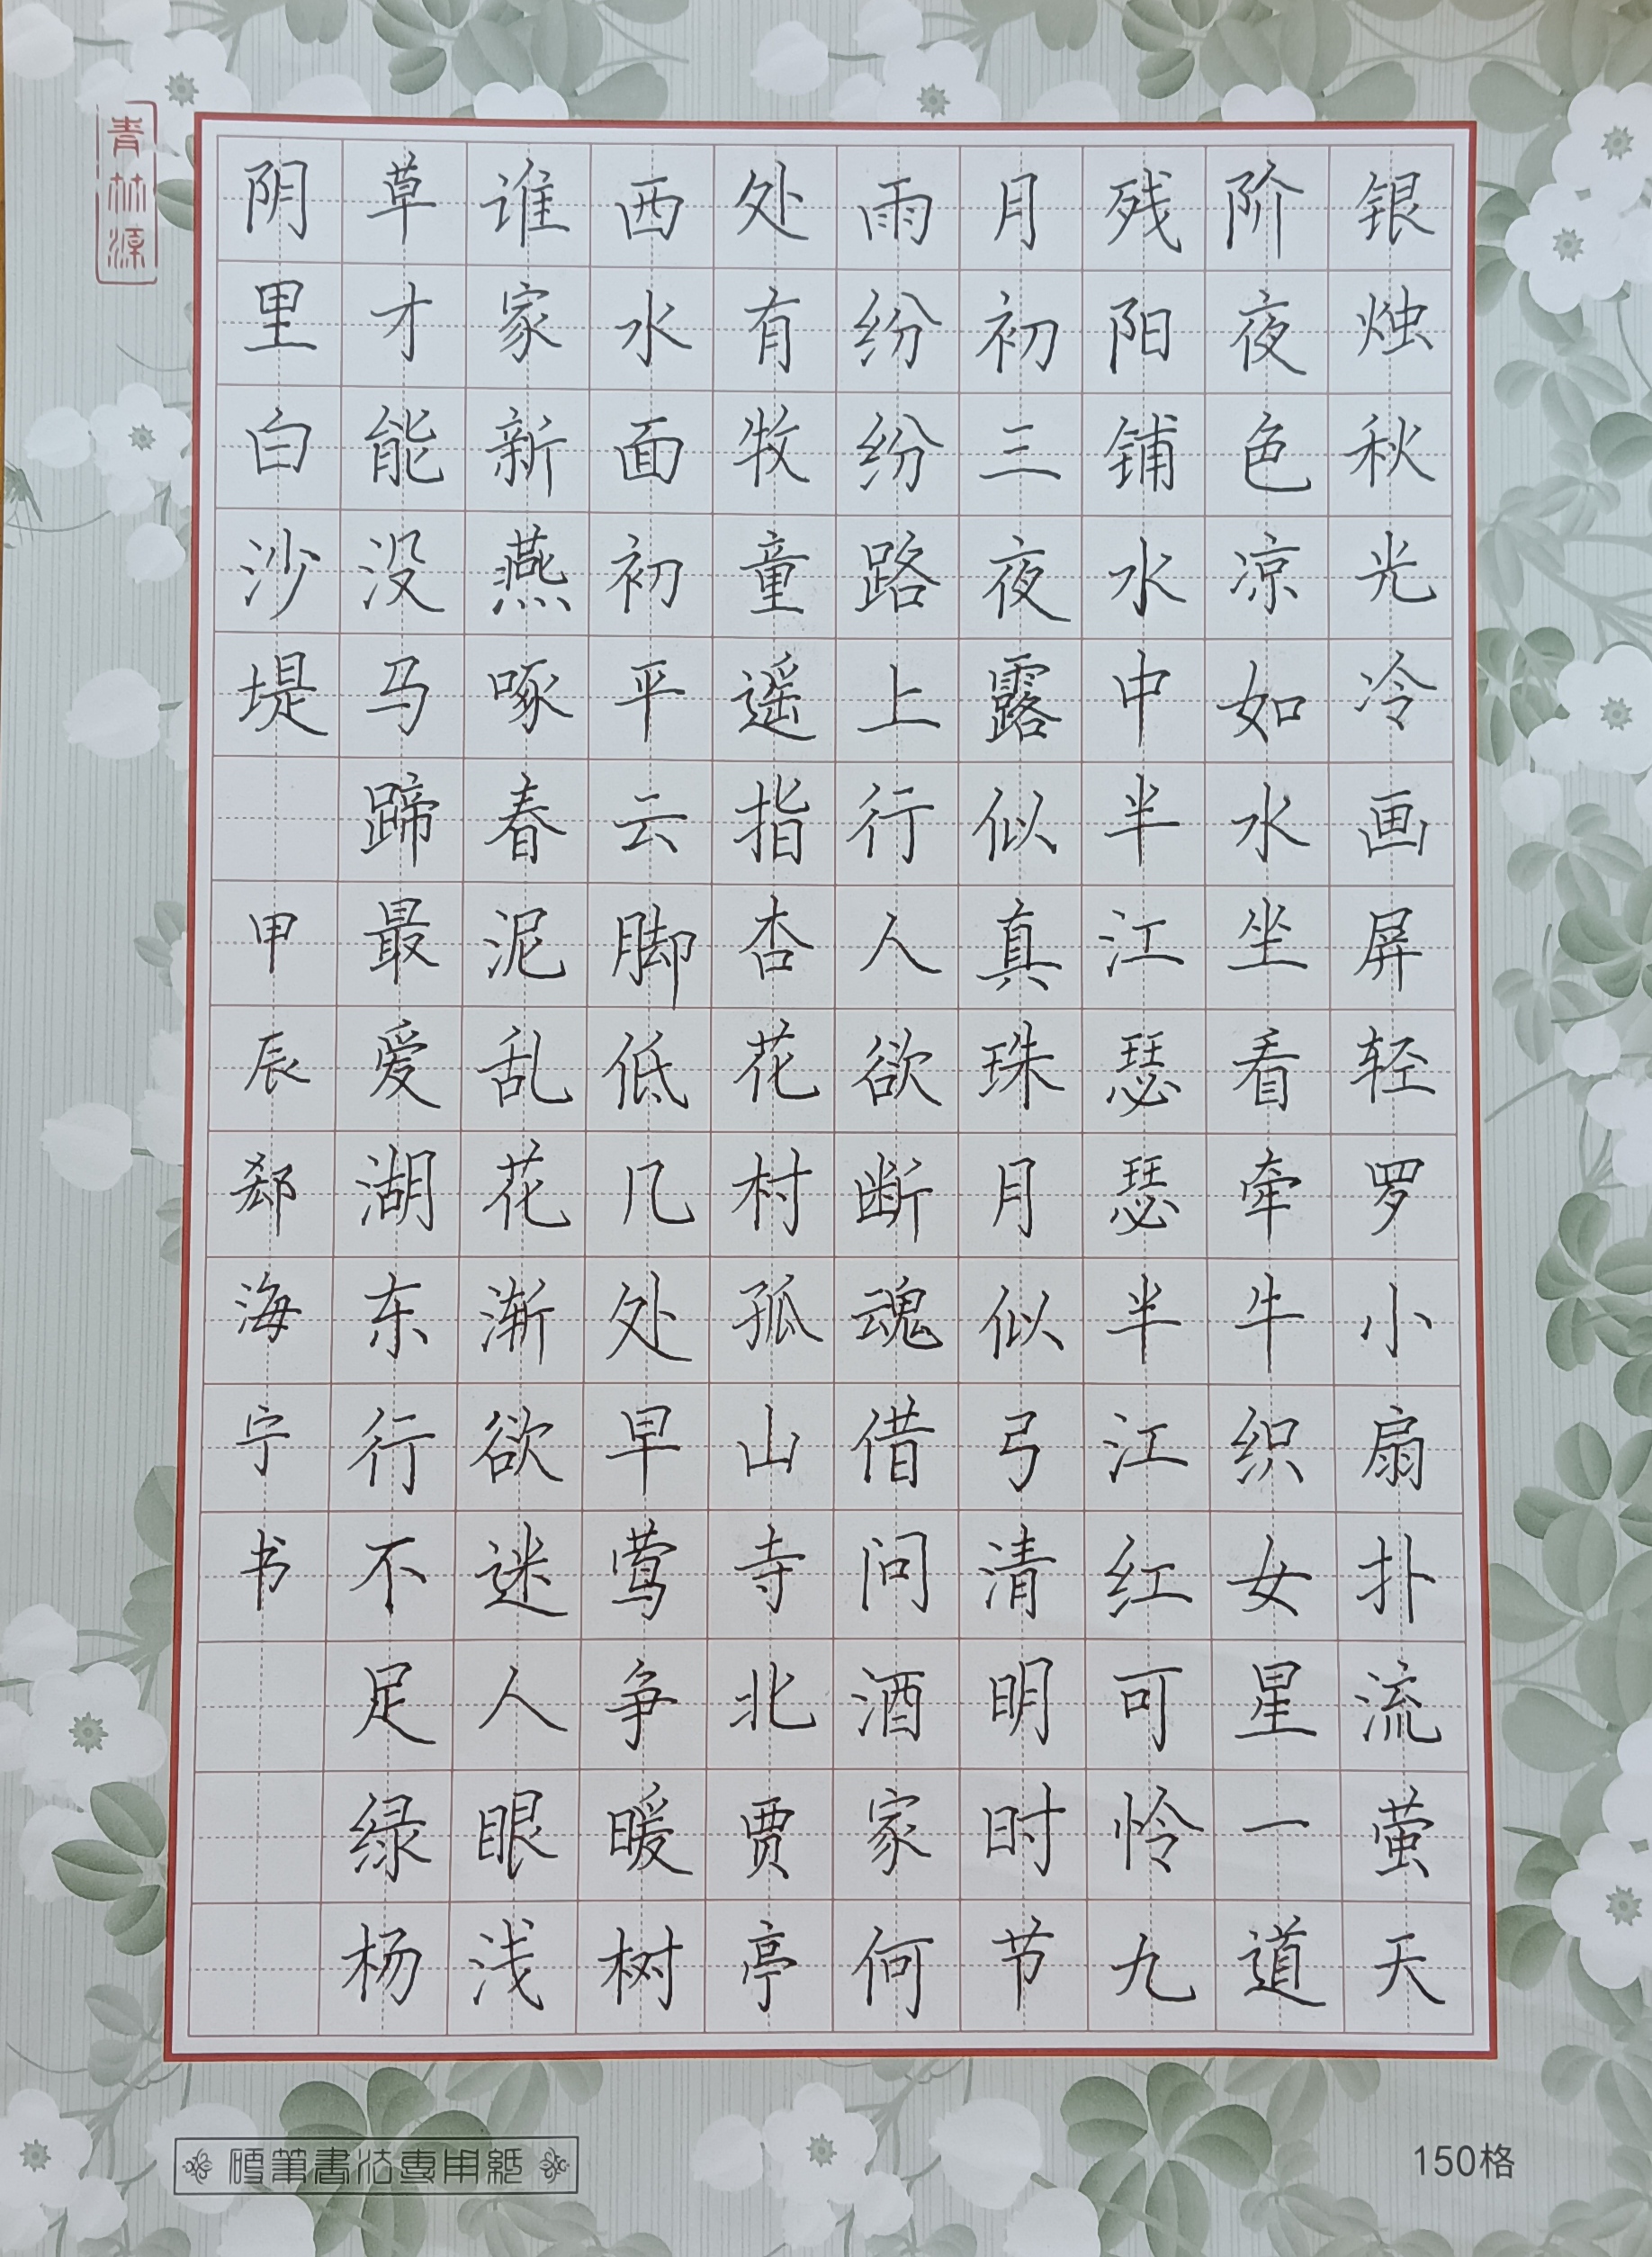 青林源
银烛秋光冷画屏轻罗小扇扑流萤天
阶夜色凉如水坐看牵牛织女星一道
残阳铺水中半江瑟瑟半江红可怜九
月初三夜露似真珠月似弓清明时节
雨纷纷路上行人欲断魂借问酒家何
处有牧童遥指杏花村孤山寺北贾亭
西水面初平云脚低几处早莺争暖树
谁家新燕啄春泥乱花渐欲迷人眼浅
草才能没马蹄最爱湖东行不足绿杨
阴里白沙堤 甲辰郄海宁书
硬笔書法專用紙
150格